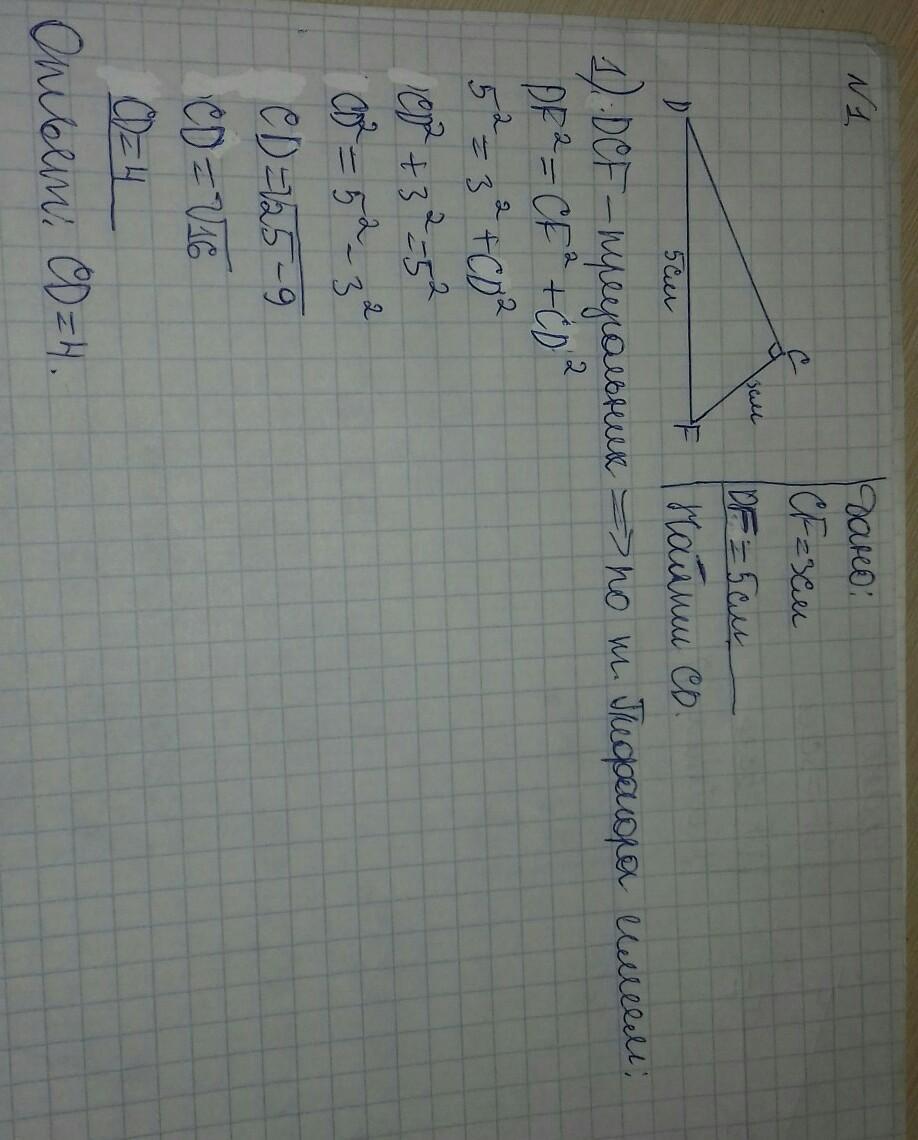 N1.
D
C
F
5см
3см
Дано:
CF=3см
DF=5см
Найти CD.
1) DCF – треугольник => по т. Пифагора имеем:
DF² = CF² + CD²
5² = 3² + CD²
CD² + 3² = 5²
CD² = 5² - 3²
CD = √25-9
CD = √16
CD = 4
Ответ: CD = 4.